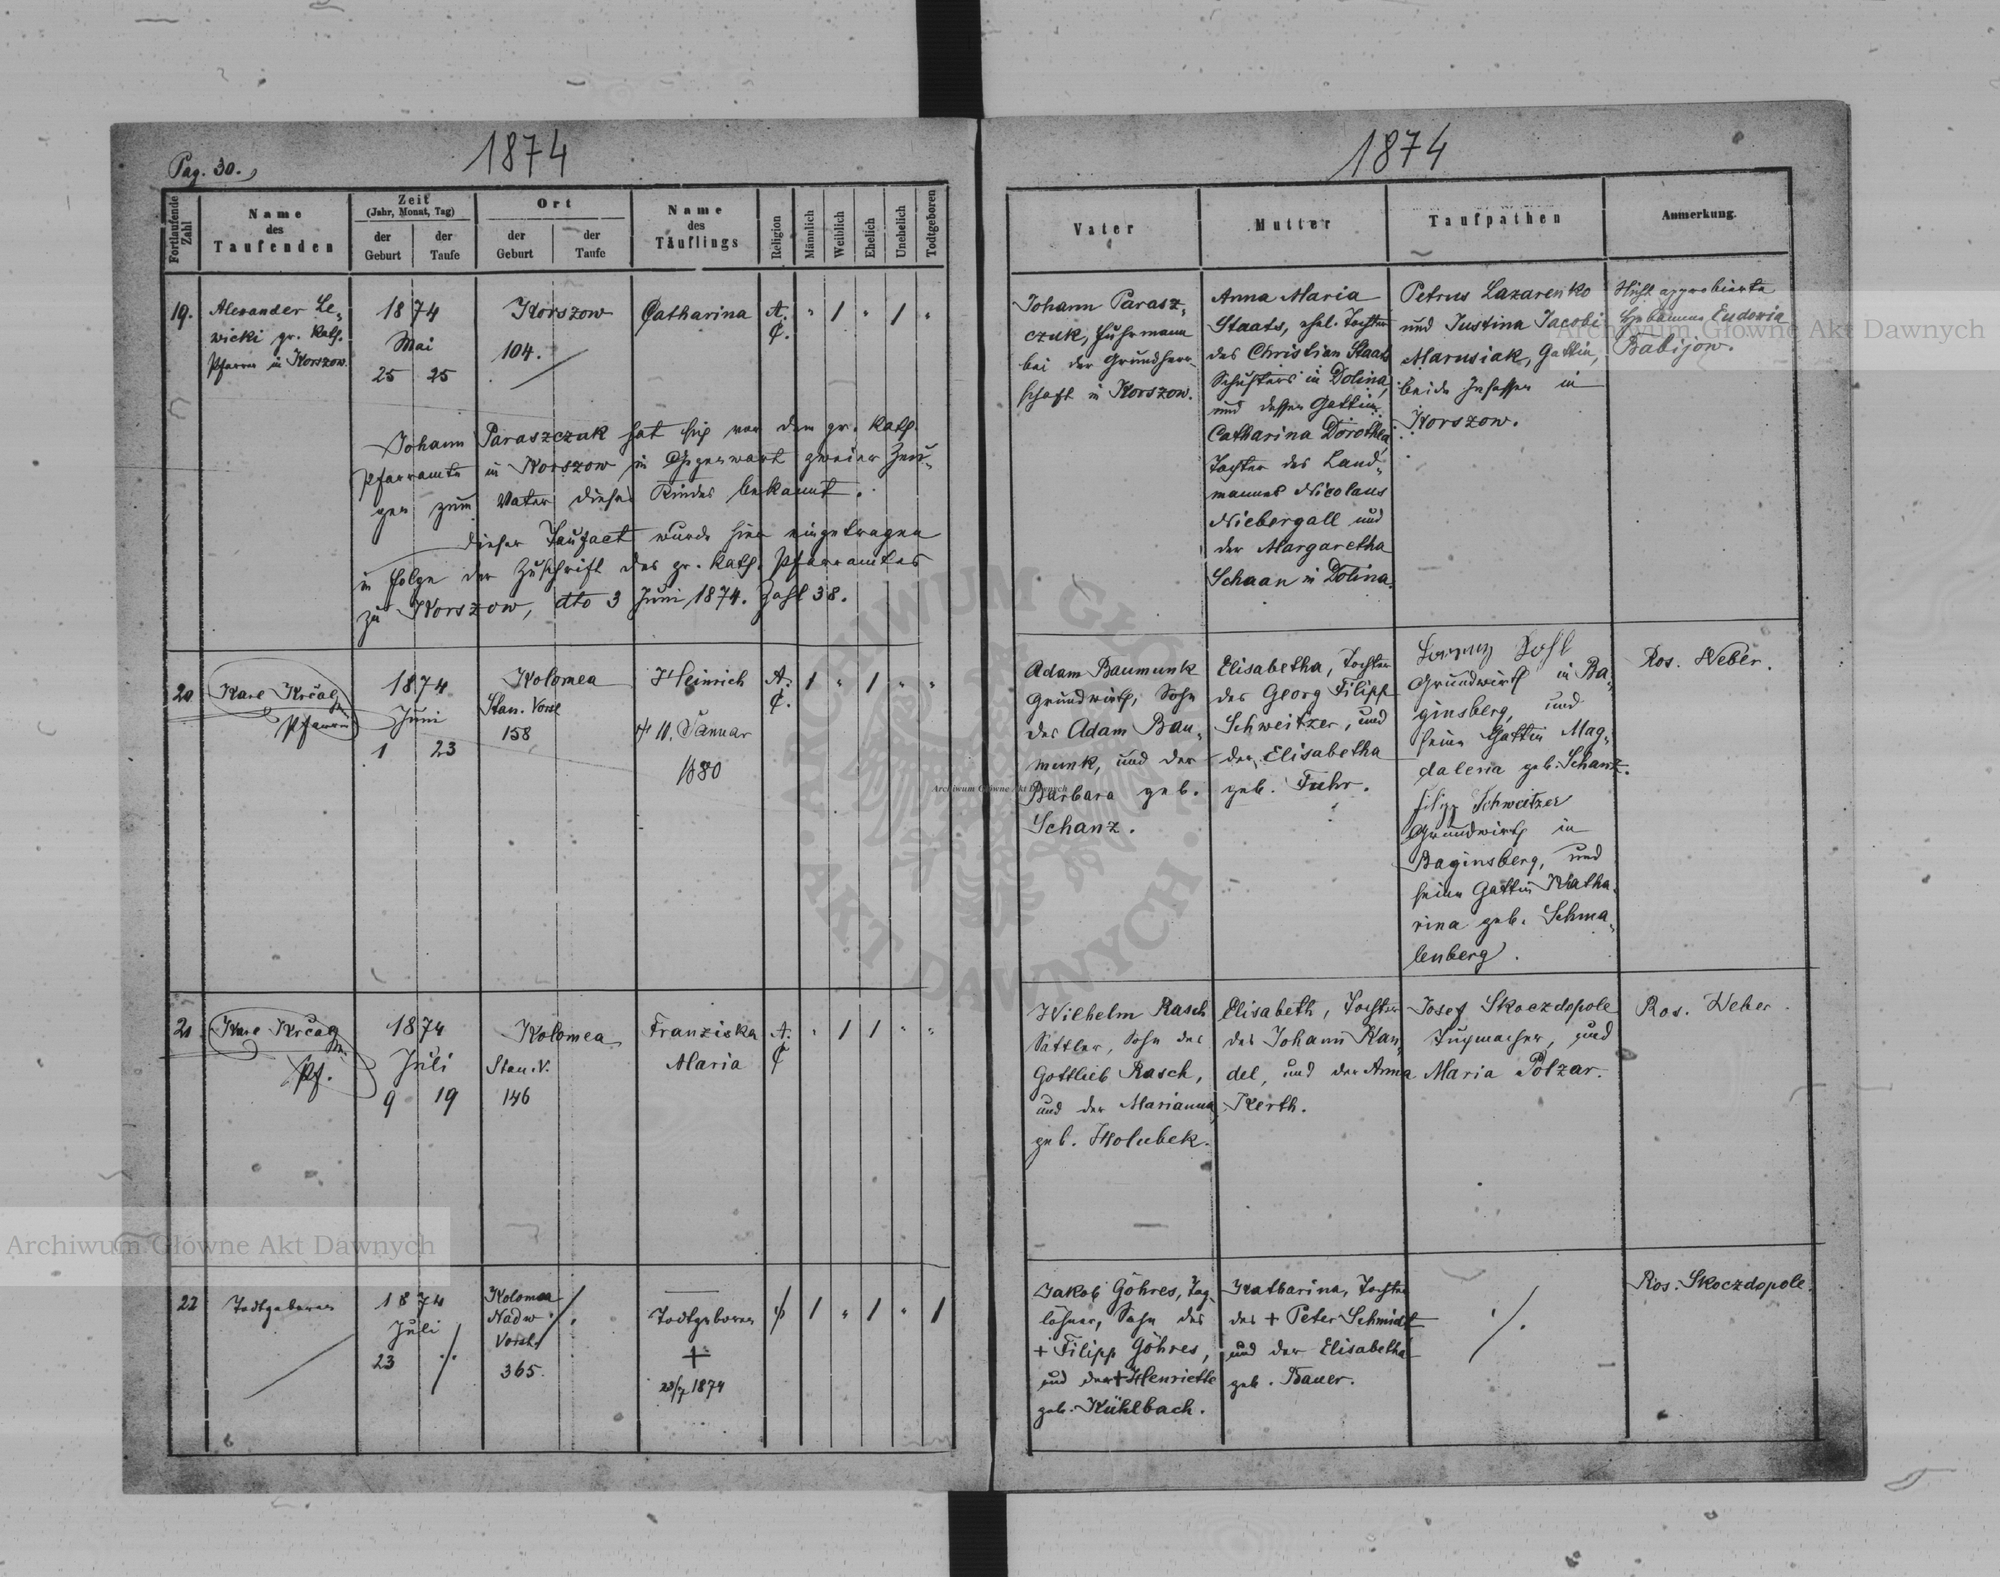 Pag. 30.
1874
1874
Fortlaufende Zahl
Name
des
Taufenden
Zeit
(Jahr, Monat, Tag)
der
Geburt
der
Taufe
Ort
der
Geburt
der
Taufe
Name
des
Täuflings
Religion
Männlich
Weiblich
Ehelich
Unehelich
Todtgeboren
Vater
Mutter
Taufpathen
Anmerkung.
19.
Alexander Le-
wicki gr. kath.
Pfarrer in Korszow.
1874
Mai
25 25
Korszow
104.
Catharina
A.
C.
" / " / "
Johann Paraszczuk hat sich vor dem gr. kath.
Pfarramte in Korszow in Gegenwart zweier Zeu-
gen zum Vater dieses Kindes bekannt.
Dieser Taufact wurde hier eingetragen
in Folge der Zuschrift des gr. kath. Pfarramtes
zu Korszow, dto 3 Juni 1874. Zahl 38.
Johann Parasz-
czuk, Fuhrmann
bei der Grundherr-
schaft in Korszow.
Anna Maria
Staats, ehel. Tochter
des Christian Staats
Schusters in Dolina,
und dessen Gattin
Catharina Dorothea,
Tochter des Land-
mannes Nicolaus
Niebergall und
der Margaretha
Schaan in Dolina.
Petrus Lazarenko
und Justina Jacobi
Marusiak, Gattin,
beide Insassen in
Korszow.
Nicht approbierte
Hebamme Eudoxia
Babijow.
20
Karl Krčal
Pfarrer
1874
Juni
1 23
Kolomea
Stan. Vorst
158
Heinrich
+ 11. Januar
1880
A.
C.
/ " / " "
Adam Baumunk
Grundwirth, Sohn
des Adam Bau-
munk, und der
Barbara geb.
Schanz.
Elisabetha, Tochter
des Georg Filipp
Schweitzer, und
der Elisabetha
geb. Fuhr.
Grundwirth in Ba-
ginsberg, und
seine Gattin Mag-
dalena geb. Schanz.
Filipp Schweitzer
Grundwirth in
Baginsberg, und
seine Gattin Katha-
rina geb. Schma-
lenberg.
Ros. Weber.
21
Karl Krčal
Pf.
1874
Juli
9 19
Kolomea
Stan. V.
146
Franziska
Maria
A.
C
" / / " "
Wilhelm Rasch
Sattler, Sohn des
Gottlieb Rasch,
und der Marianna
geb. Holubek.
Elisabeth, Tochter
des Johann Kan-
del, und der Anna
Kerth.
Josef Skoczdopole
Tuchmacher, und
Maria Polzar.
Ros. Weber.
22
Todtgeboren
1874
Juli
23 ./.
Kolomea
Nadw.
Vorst.
365.
./.
Todtgeboren
+
23/7 1874
/ " / " /
Jakob Göhres, Tag-
löhner, Sohn des
+ Filipp Göhres,
und der + Henriette
geb. Kühlbach.
Katharina, Tochter
des + Peter Schmidt
und der Elisabetha
geb. Bauer.
./.
Ros. Skoczdopole.
Archiwum Główne Akt Dawnych
Archiwum Główne Akt Dawnych
Archiwum Główne Akt Dawnych
ARCHIWUM GŁÓWNE AKT DAWNYCH